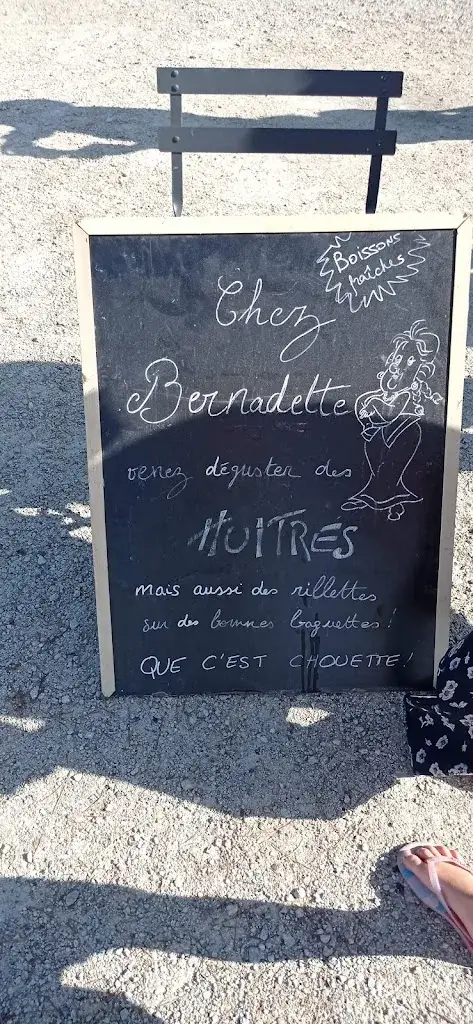 Boissons
fraîches
Chez
Bernadette
venez déguster des
HUITRES
mais aussi des rillettes
sur des bonnes baguettes!
QUE C'EST CHOUETTE!